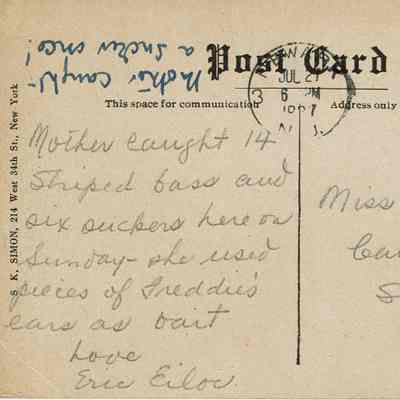 Mother caught
a sucker once!
Post Card
JUL 21
3 6 PM
N. J.
This space for communication
Address only
S. K. SIMON, 214 West 34th St., New York
Mother caught 14
Striped bass and
six suckers here on
Sunday - she used
pieces of Freddie's
ears as bait
Love
Eric
Miss